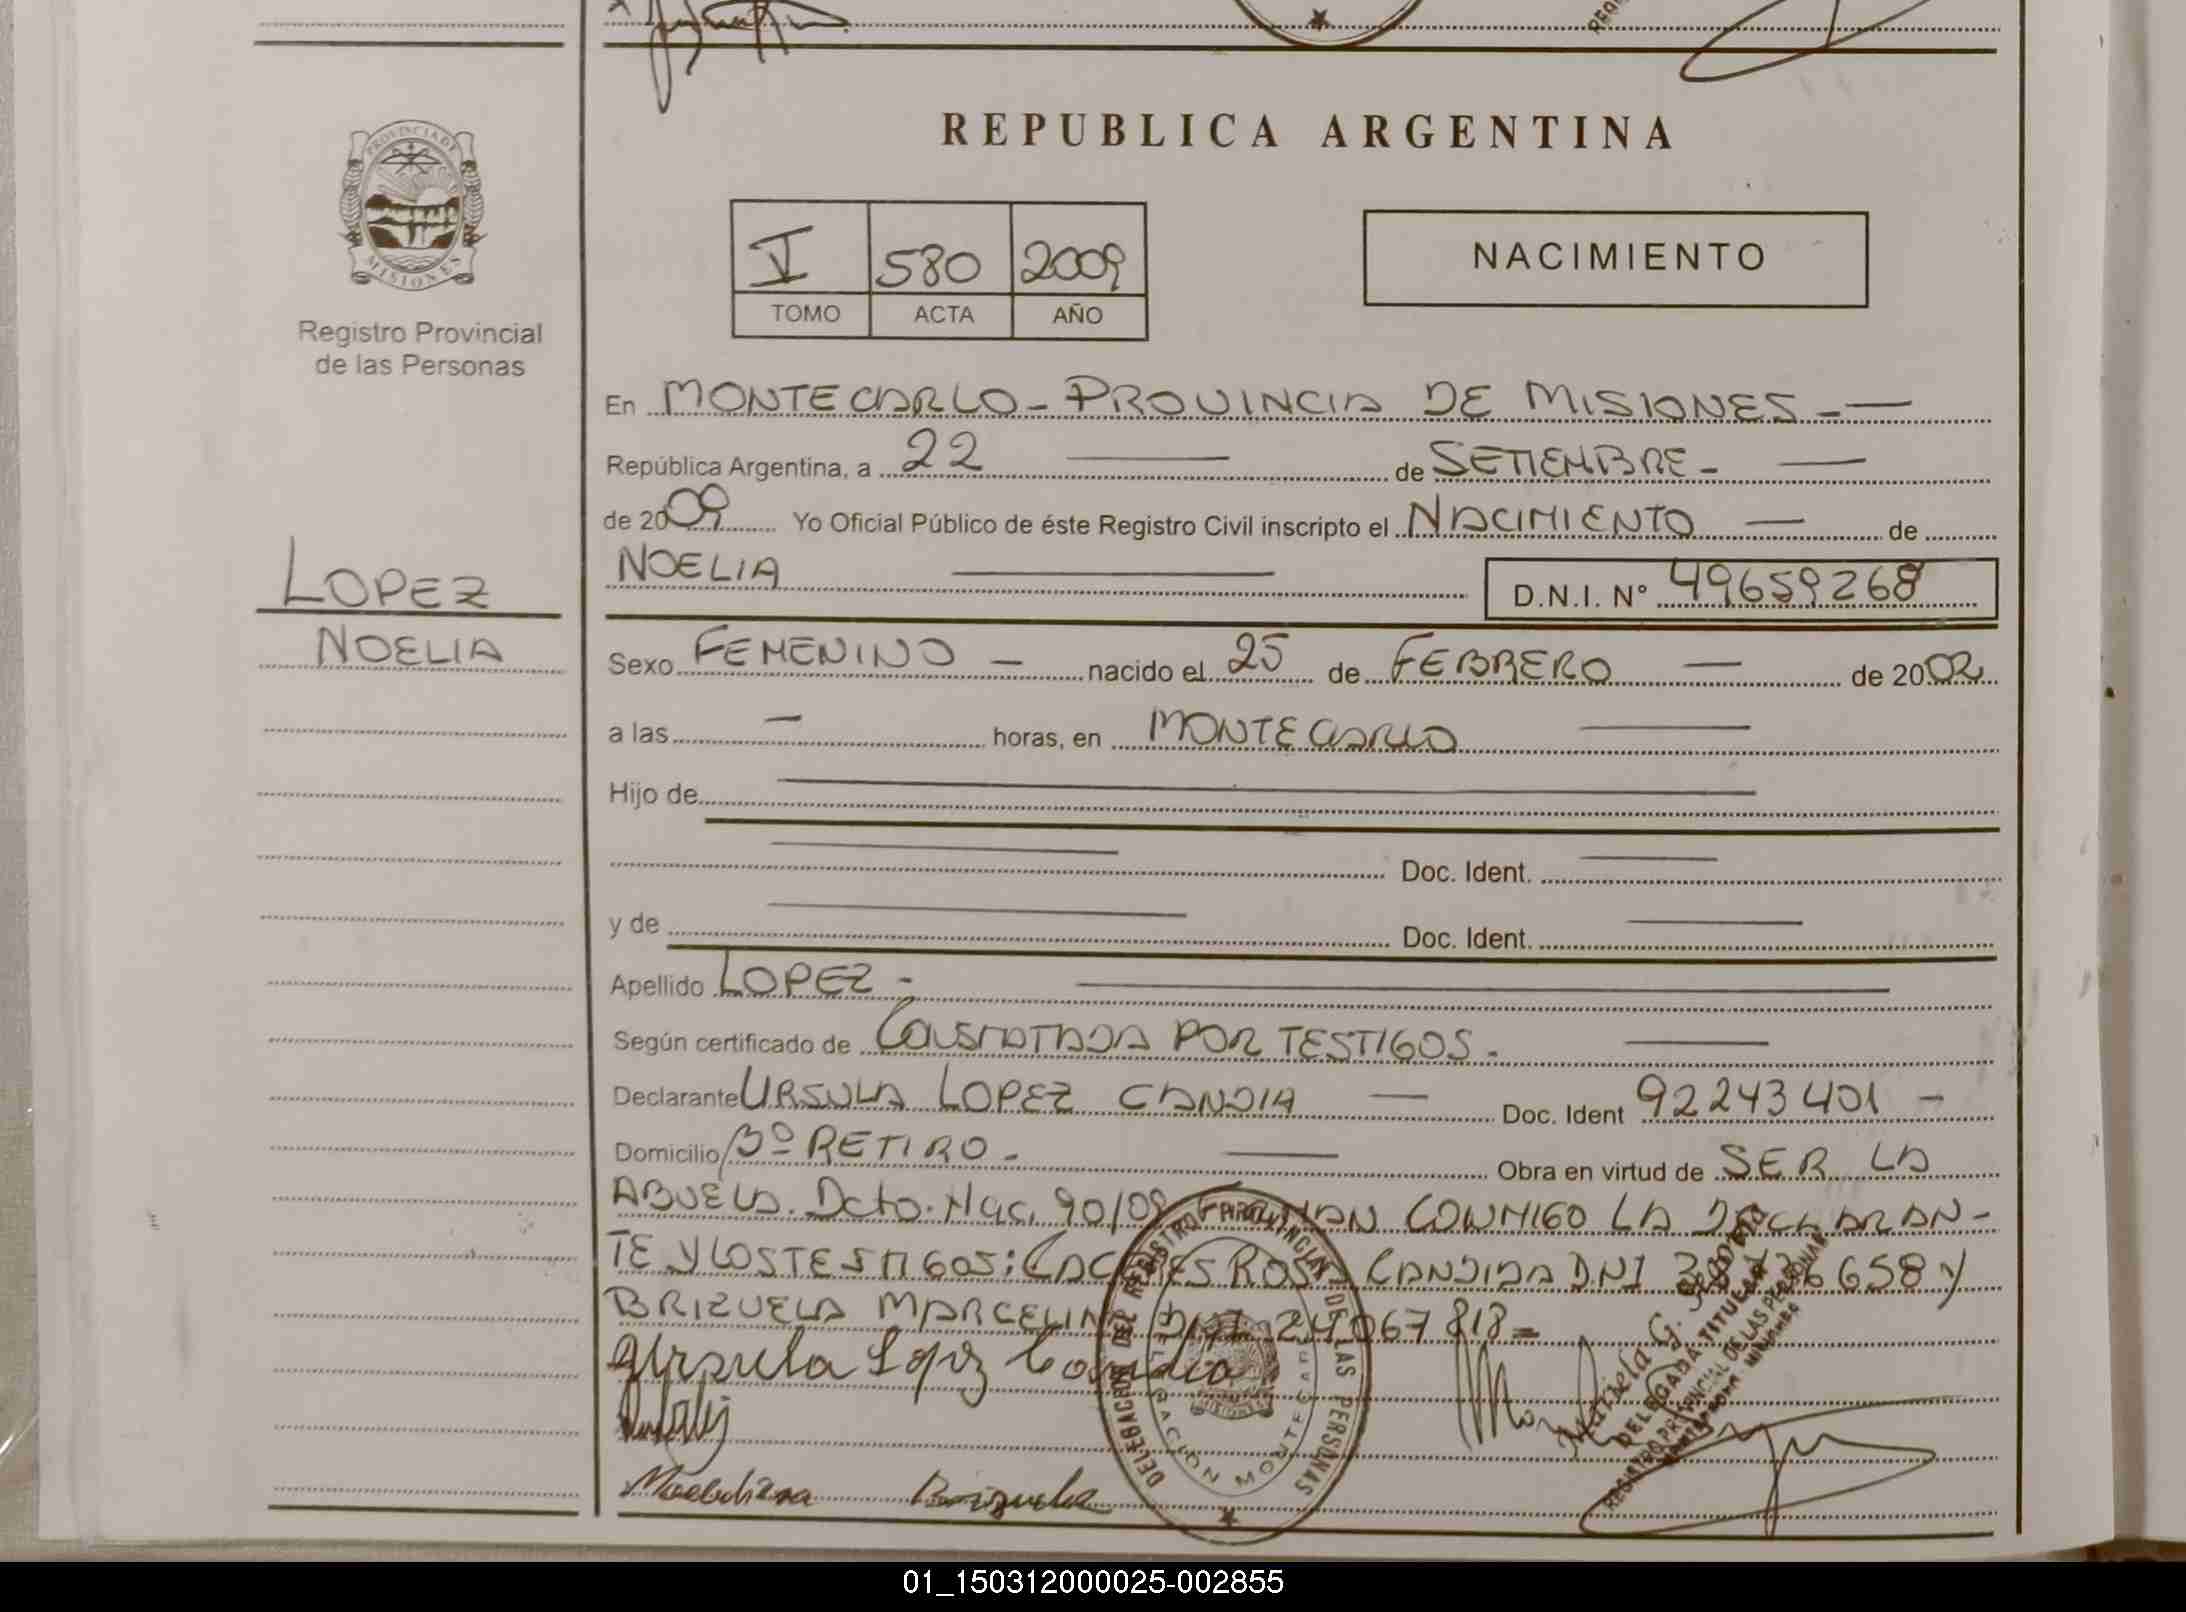 PROVINCIA DE
MISIONES
Registro Provincial
de las Personas
LOPEZ
NOELIA
REPUBLICA ARGENTINA
V 580 2009
TOMO ACTA AÑO
NACIMIENTO
En MONTECARLO - PROVINCIA DE MISIONES - —
República Argentina, a 22 — de SETIEMBRE - —
de 2009 Yo Oficial Público de éste Registro Civil inscripto el NACIMIENTO — de
NOELIA — D.N.I. N° 49659268
Sexo FEMENINO — nacido el 25 de FEBRERO — de 2002
a las — horas, en MONTECARLO —
Hijo de —
— Doc. Ident. —
y de — Doc. Ident. —
Apellido LOPEZ - —
Según certificado de CONSTATADA POR TESTIGOS. —
Declarante URSULA LOPEZ CANDIA — Doc. Ident 92243401 -
Domicilio Bº RETIRO - — Obra en virtud de SER LA
ABUELA. Dcto. Nac. 90/09 FIRMAN CONMIGO LA DECLARAN-
TE Y LOS TESTIGOS: CACERES ROSA CANDIDA DNI 6658 y
BRIZUELA MARCELINA DNI 24067818 =
Ursula Lopez Candia
Brizuela
DELEGACION DEL REGISTRO PROVINCIAL DE LAS PERSONAS
DELEGACION MONTECARLO
MISIONES
Mariela G.
DELEGADA TITULAR
REGISTRO PROVINCIAL DE LAS PERSONAS
01_150312000025-002855